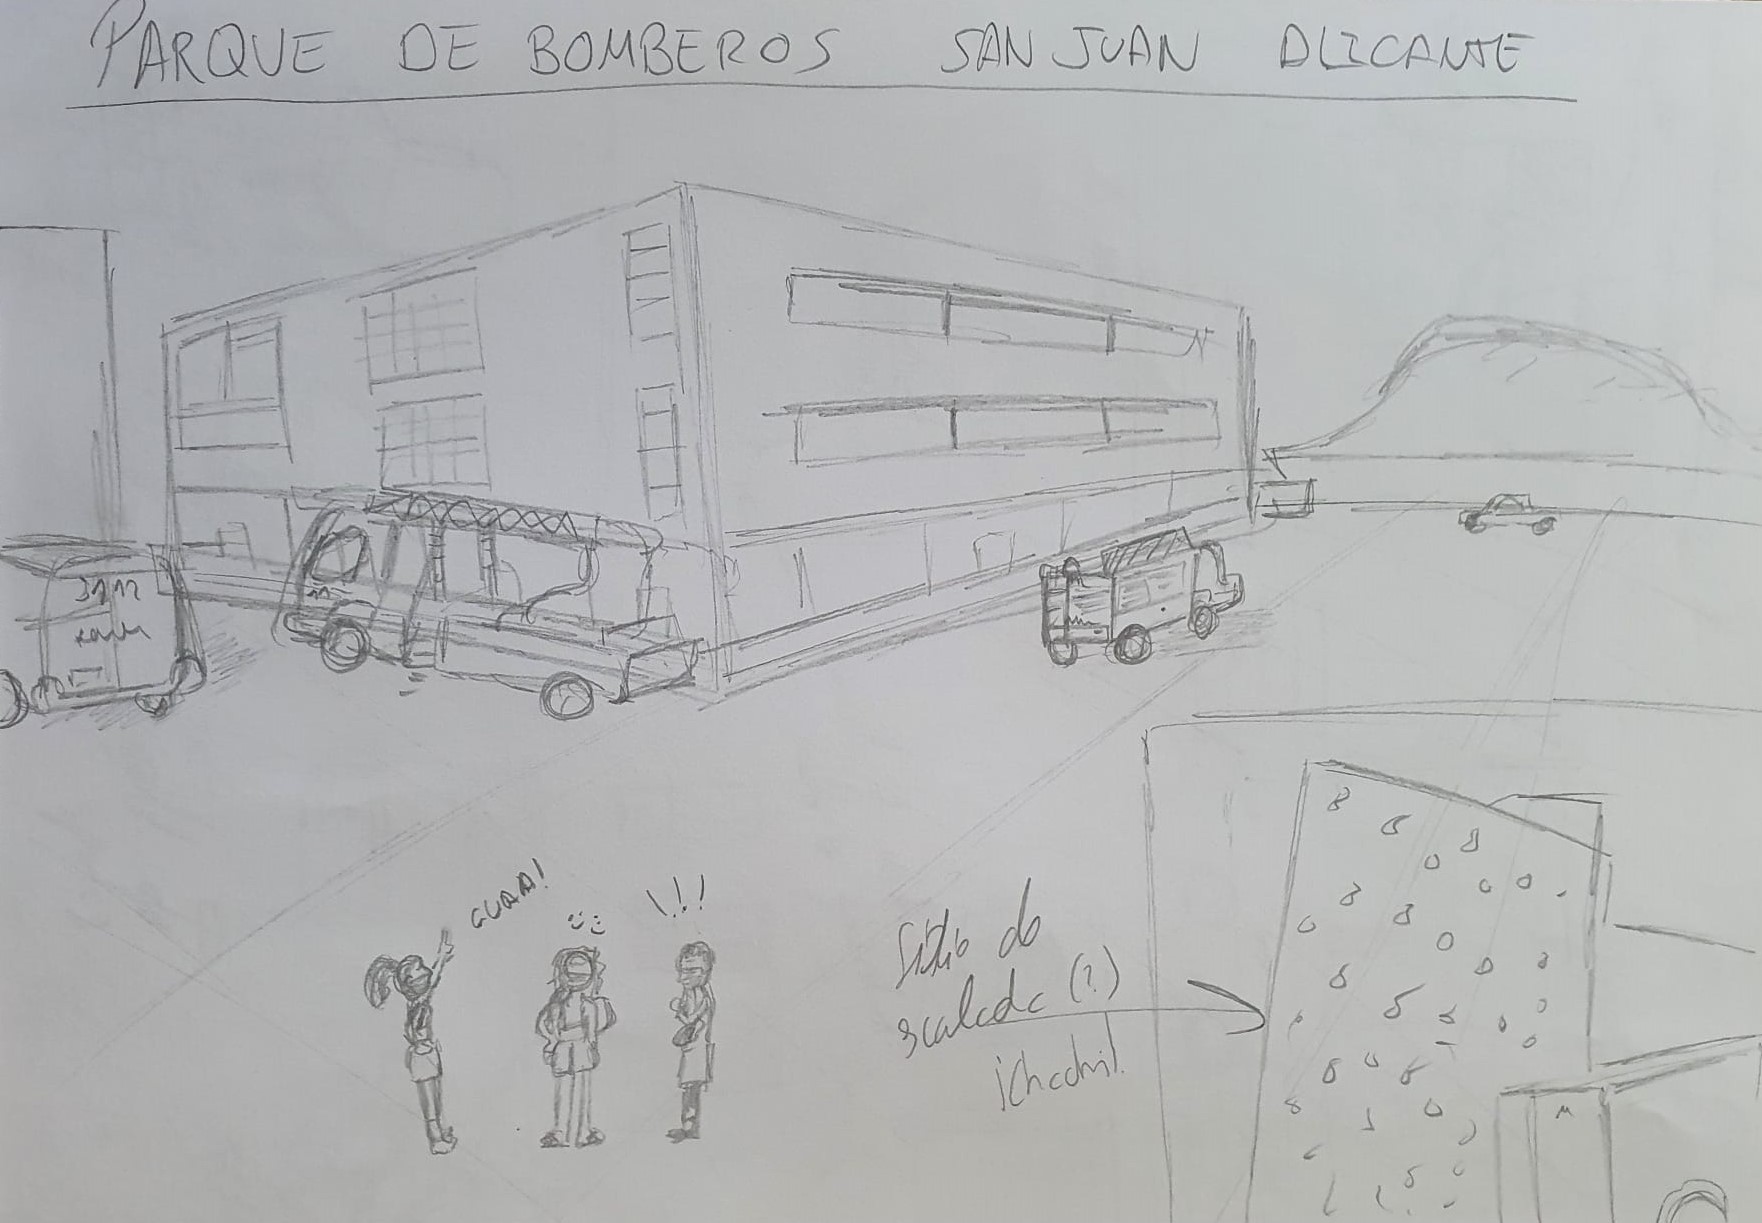 PARQUE DE BOMBEROS SAN JUAN ALICANTE
GUAA!
!!!
Sitio de
escalada (?)